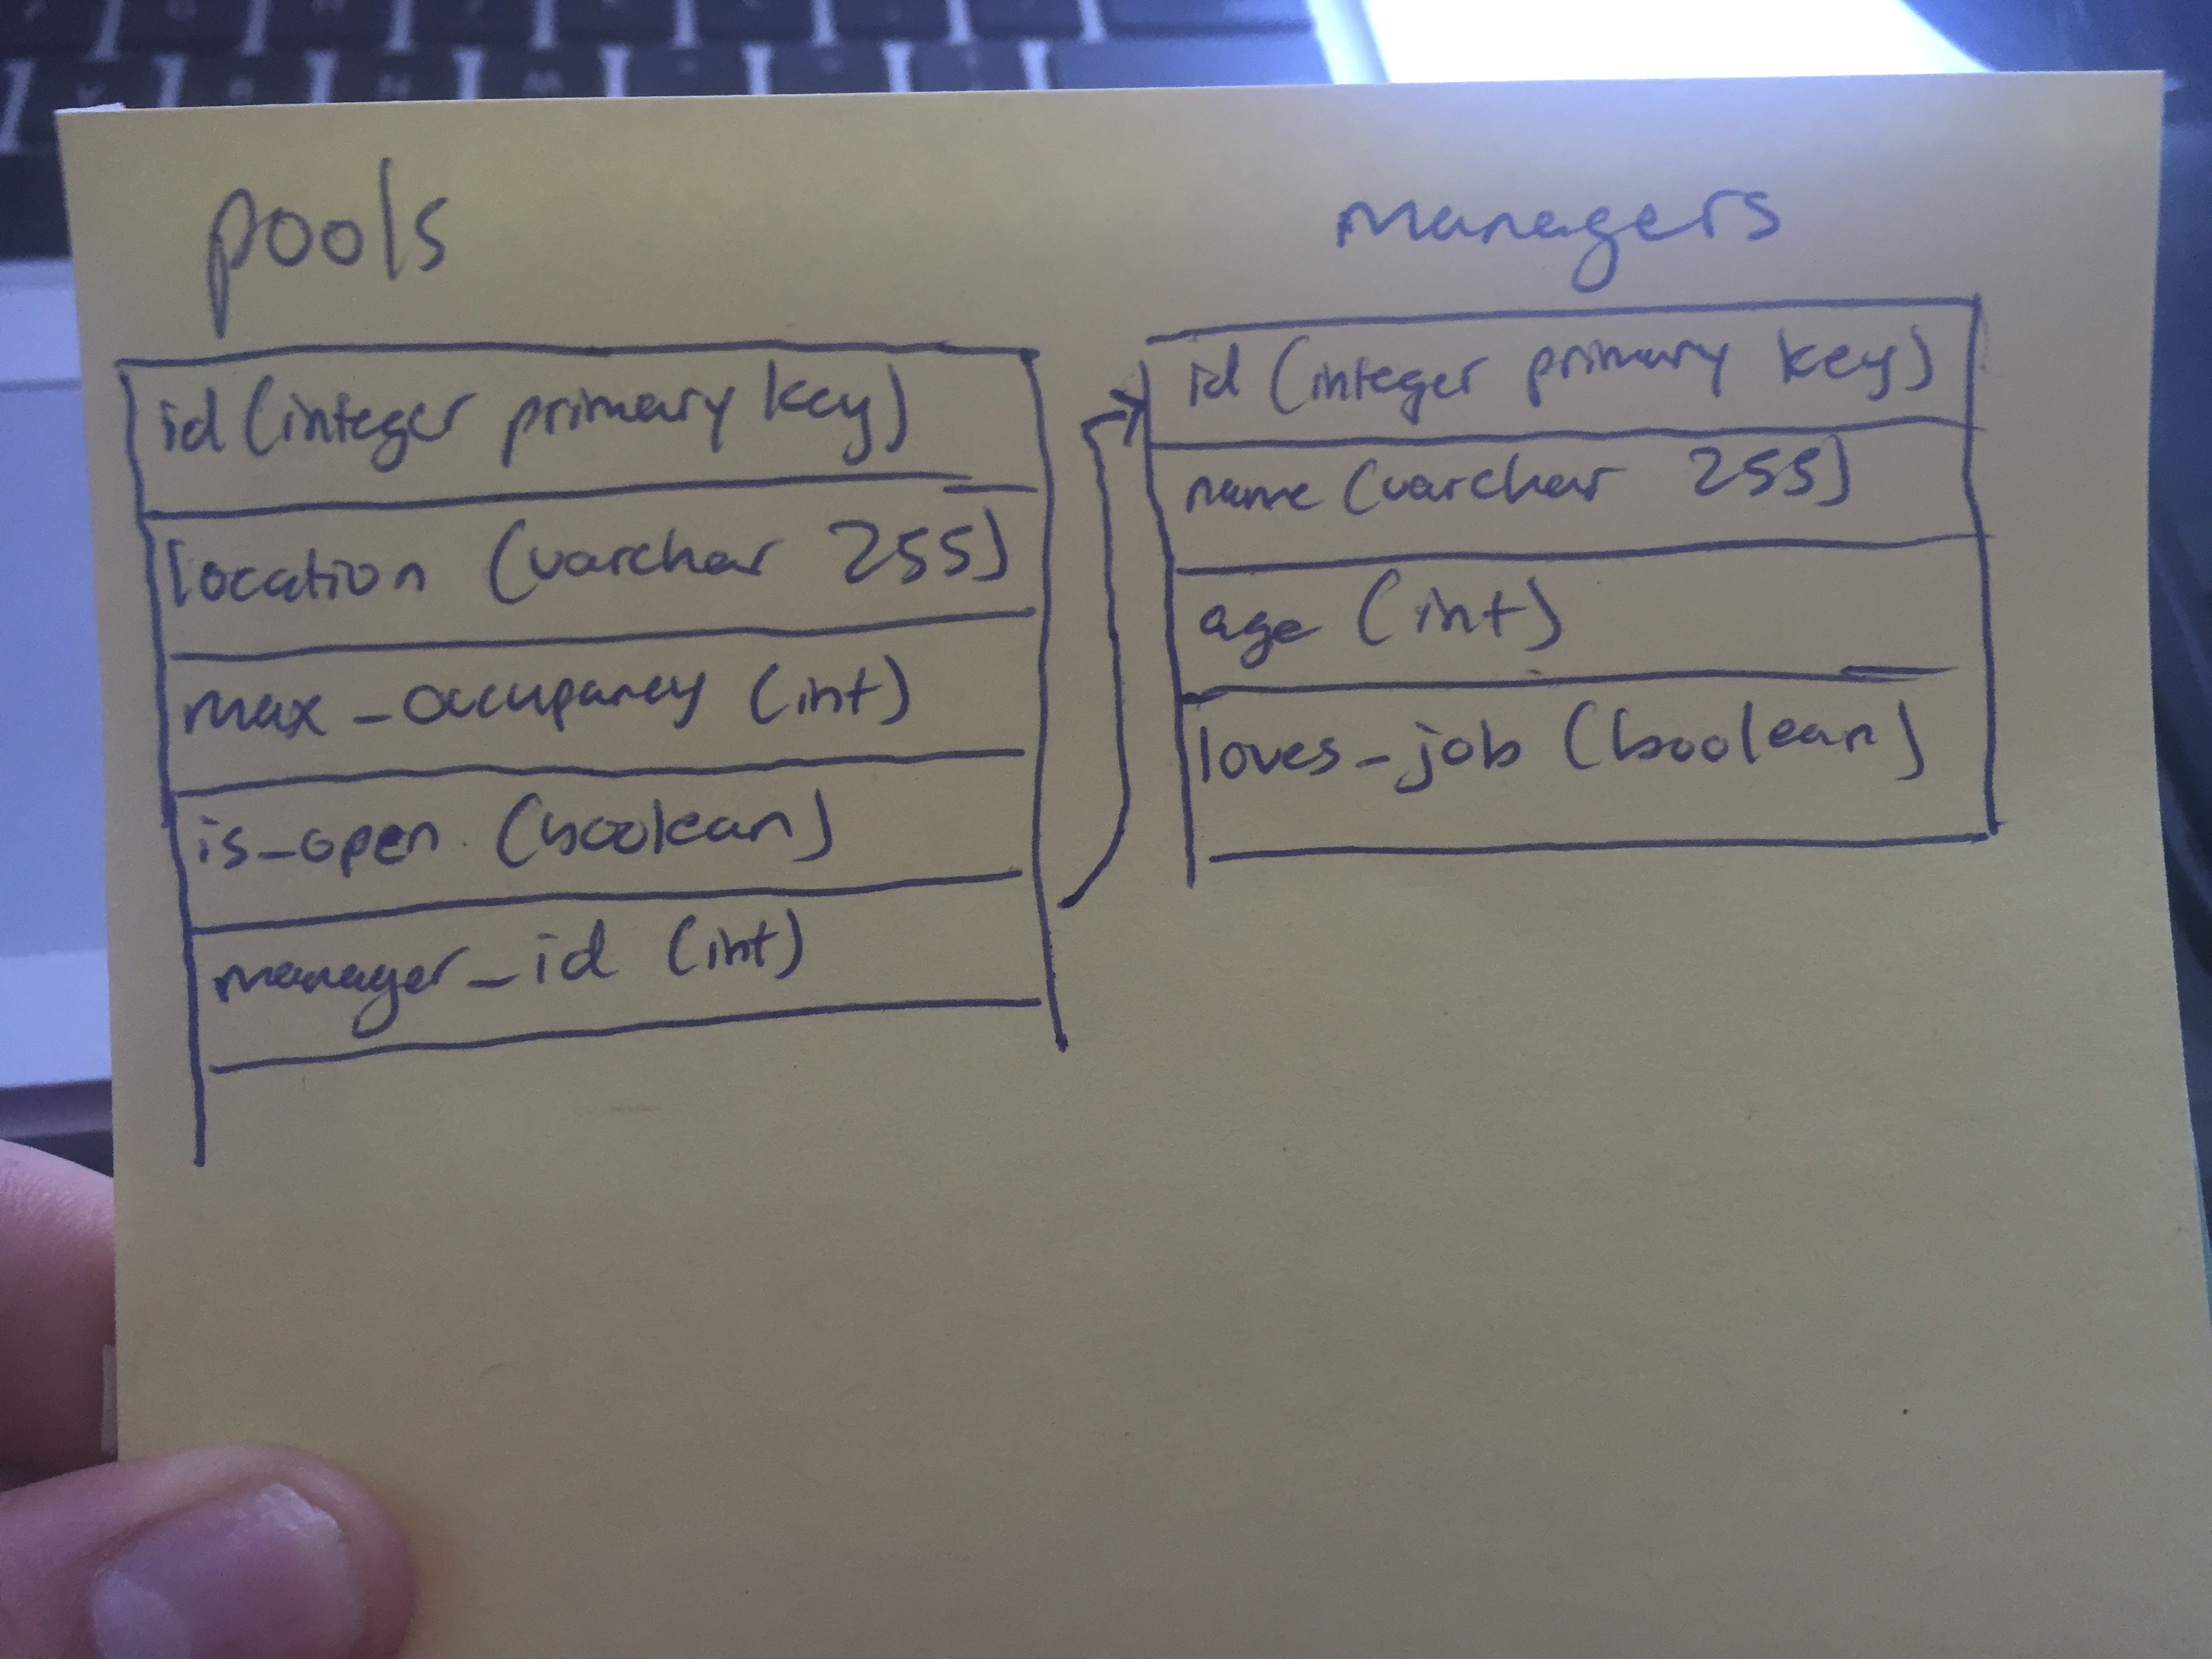 pools
id (integer primary key)
location (varchar 255)
max_occupancy (int)
is_open (boolean)
manager_id (int)
managers
id (integer primary key)
name (varchar 255)
age (int)
loves_job (boolean)